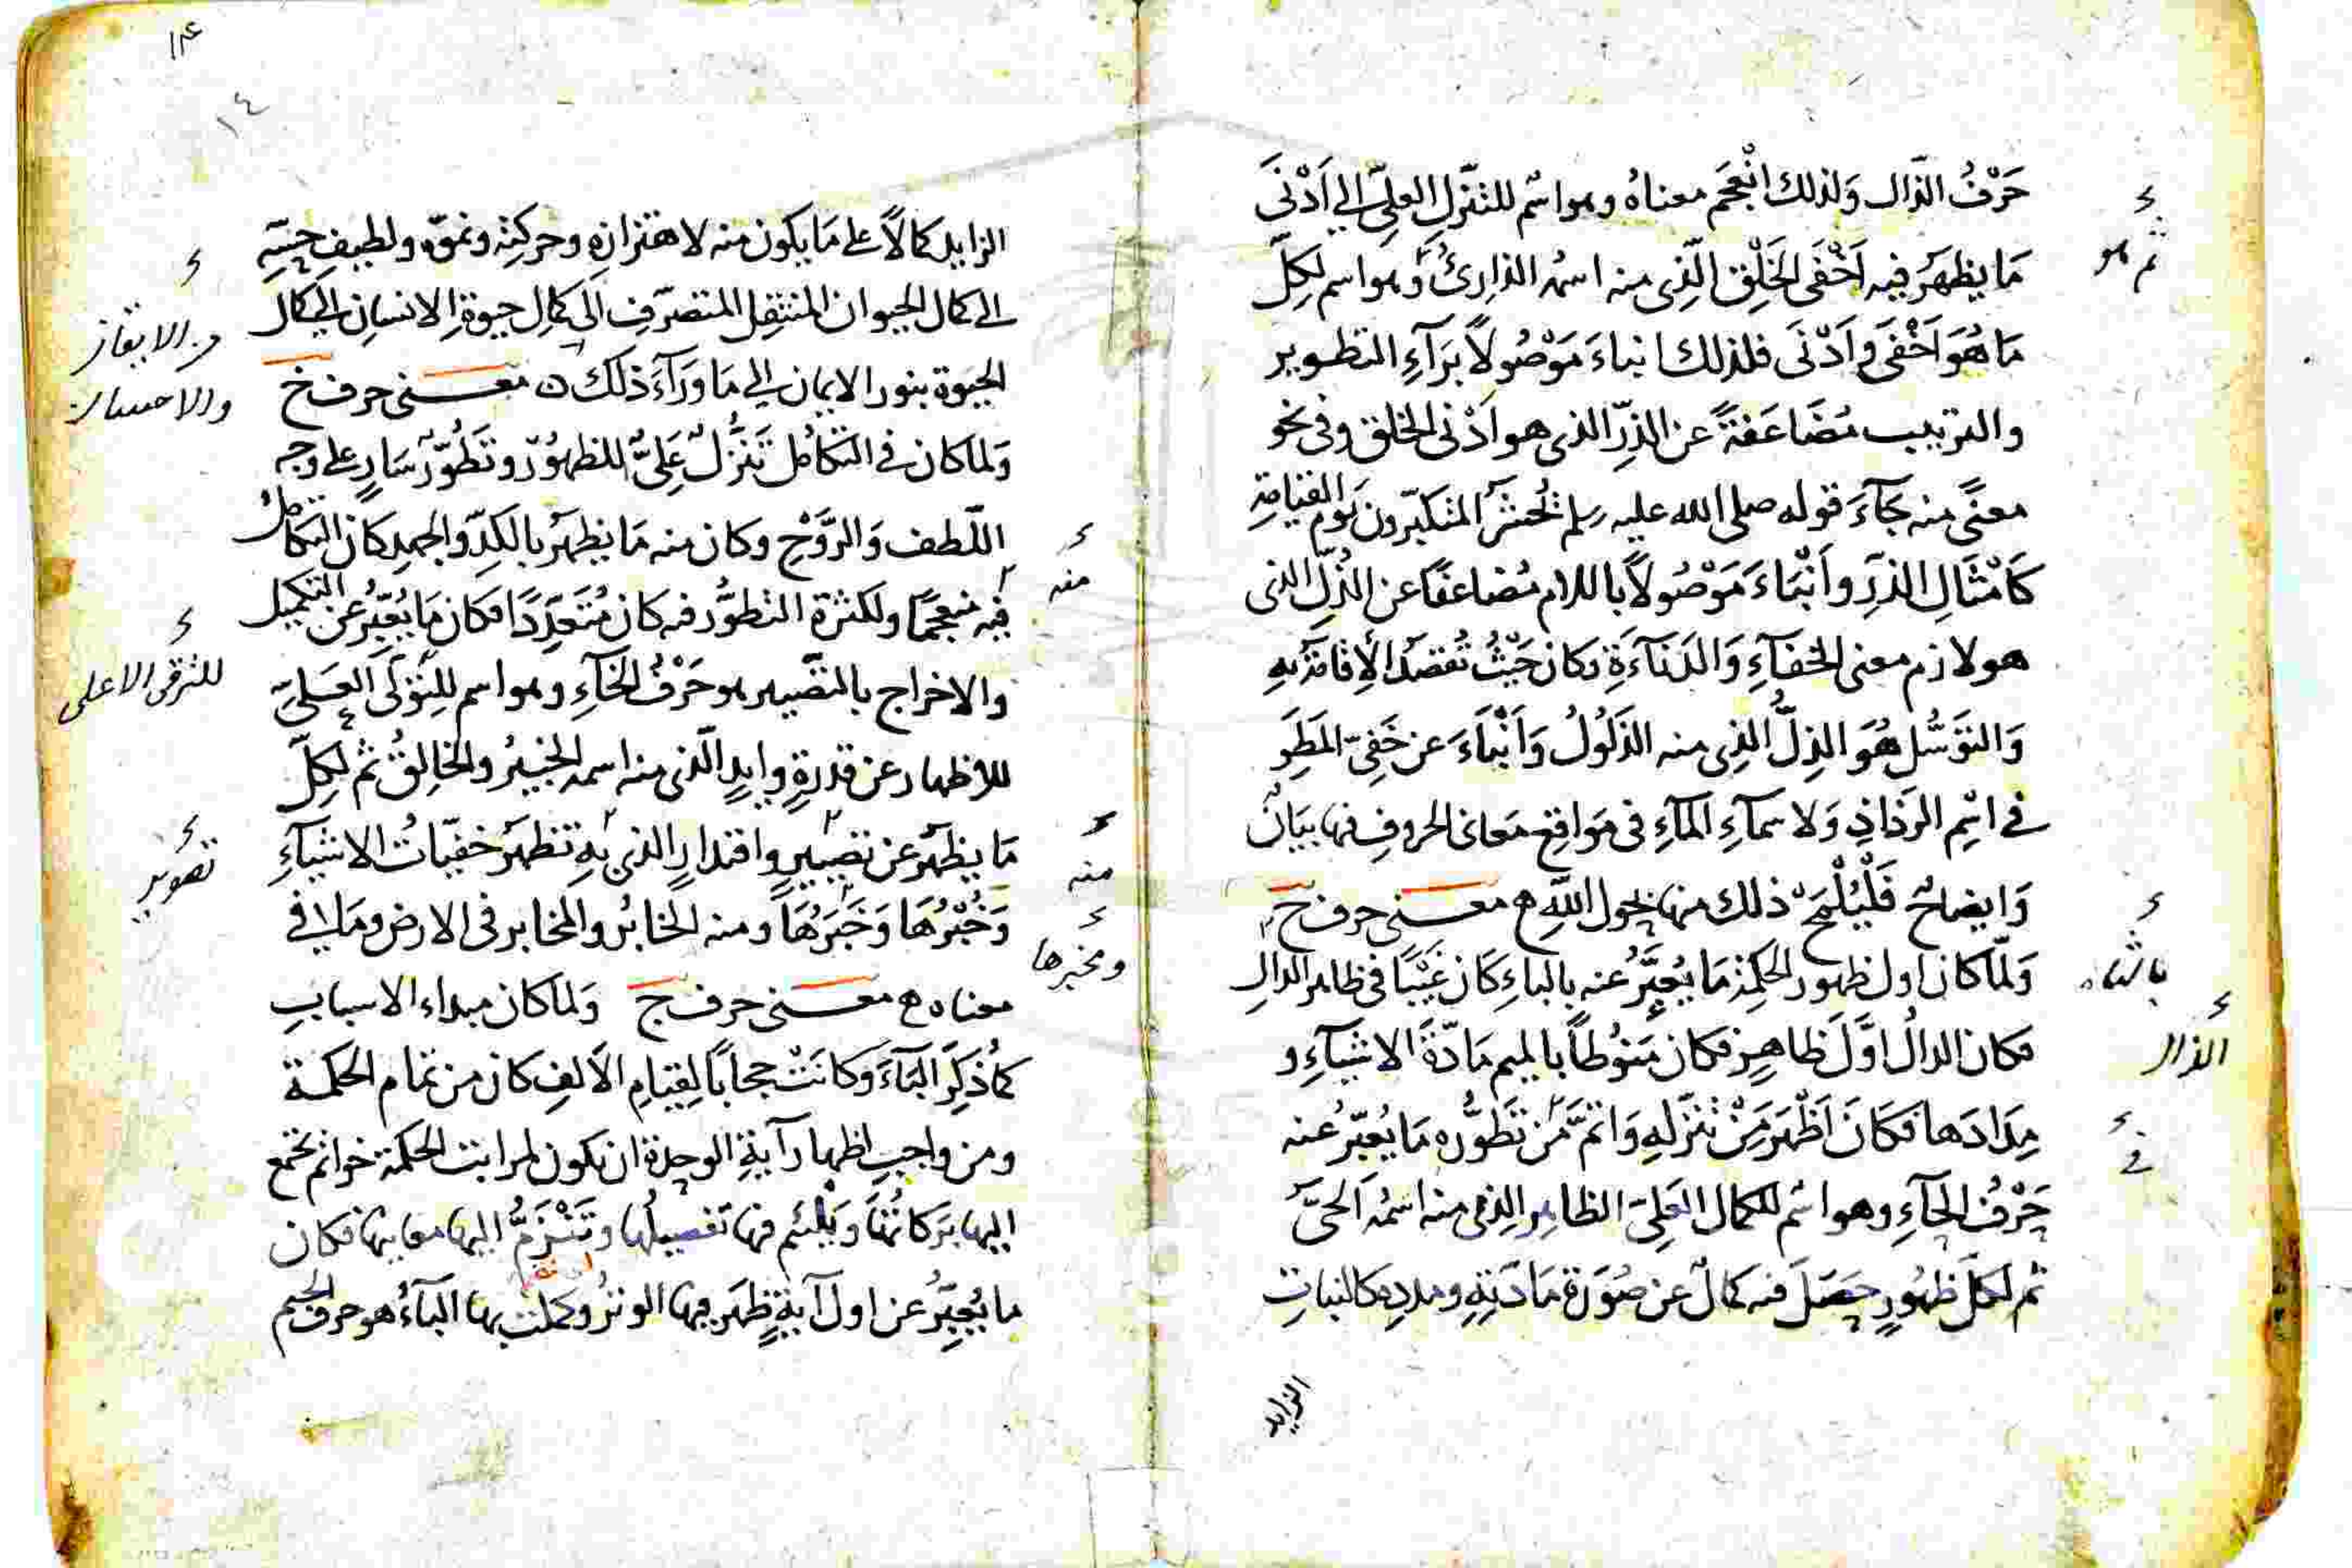 حَرْفُ الذّال وَلذلك انْعَجَم معناهُ وهو اسْم للتنَزّلِ العلىّ الى اَدْنَى
مَا يظهَرُ فيه اَخْفَى الخَلْقِ الّذى منه اسمُه الذارِئُ وهو اسم لكلِّ
مَا هُوَ اَخْفَى واَدْنَى فلذلك انباءَ مَوْصُولاً بَرآءِ التطوير
والترتيب مُضَاعَفةً عن الذرّ الذى هو اَدْنى الخلق وفى نحو
معنًى منه جَآءَ قوله صلى الله عليه وسلم يُحْشَرُ المتكبّرون يَوْم القيامةِ
كَاَمْثَالِ الذرِّ واَنْبَاءَ مَوْصُولاً باللام مُضاعَفًا عن الذُلِّ الذى
هو لازم معنى الخفآءِ وَالدَنآءَةِ وكان حَيْثُ تُقصَدُ الاِقامَةُ بهِ
وَالتوَسُّل هُوَ الذِلُّ الذى منه الذَلُولُ وَاَنْبَاءَ عن خَفِىّ المَطَرِ
فى اسْمِ الرَذاذِ وَلاسمآءِ المآءِ فى مَوَاقِع مَعَانى الحروفِ فيها بيَانٌ
وَايضاحٌ فَلْيُلْمَحْ ذلك منها بحول اللّهِ معنى حرف ح
وَلمّا كان اول ظهور الحكمة مَا يُعبَّرُ عنه بالباءِ كَان غَيْبًا فى ظاهر الدالِ
فكان الدالُ اوَّلَ ظاهِرٍ فكان مَنُوطاً بالميم مَادّةَ الاشيآءِ و
مِدَادَها فكَانَ اَظْهَرَ مَنْ تنَزّلهِ وَاَتَمَّ مَن تطَوُّره مَا يُعبّرُ عنه
حَرْفُ الحآءِ وهو اسْم للكمال العَلِىّ الظاهِر الذى منه اسمُه الحَىُّ
ثم لكلّ ظهُورٍ حصَلَ فيه كمالٌ عن صُوَرة مَادّتهِ ومددِه كالنباتِ
الزايد
ثم هو
بالتاء
الذال
فى
۱۴
١٤
الزايد كمالاً على مَا يكون منه لاهتزازهِ وحركتهِ ونموّه ولطيفِ حِسّهِ
الى كمال الحيوان المنتقِل المتصرّفِ الى كمالِ حيوةِ الانسان الى كمال
الحيوة بنور الايمان الى مَا ورَآءَ ذلك ن معنى حرف خ
وَلما كان فى التكامُل تَنَزُّلٌ عَلِىٌّ للظهُوْر وتَطُوّرٌ سَارٍ على وجه
اللّطف وَالرَوْحِ وكان منه مَا يظهَرُ بالكَدِّ والجهدِ كَان التكامُلُ
فيه منعجمًا ولكثرة التطوُّر فيه كان مُتَعَدِّدًا فكان مَا يُعَبِّرُ عن التكميل
والاخراج بالتصيير هو حَرْفُ الخآءِ وهو اسم للتولّى العَلىّ
للاظهار عن قدرةٍ وايدٍ الّذى منه اسمه الخبيرُ والخالِقُ ثم لكلِّ
مَا يظهَرُ عن تصييرٍ واقتدارٍ الذى بهِ تظهَرُ خفيّات الاشيآءِ
وَخُبْرُهَا وَخَبَرُهَا ومنه الخابرُ والمخابر فى الارض ومَا فى
معناه معنى حرف ج وَلما كان مبداء الاسبابِ
كما ذُكِرَ البَاءَ وَكانَتْ حجاباً لقِيَامِ الاَلفِ كان من تمام الحكمة
ومن واجبِ اظهار آيةِ الوحدة ان تكون لمراتب الحكمة خواتم تجمع
اليها بَركاتُهَا ويَلْتئم فيها تفصيلُها وتَنْزَمُّ اليها معانيها فكان
ما يُعبَّرُ عن اول آيةٍ ظهَر فيها الوترُ وكملت بها البآءُ هو حرف الجيم
من الايقان
والاحسان
منه
للترقى الاعلى
تصوير
منه
ومخبرها